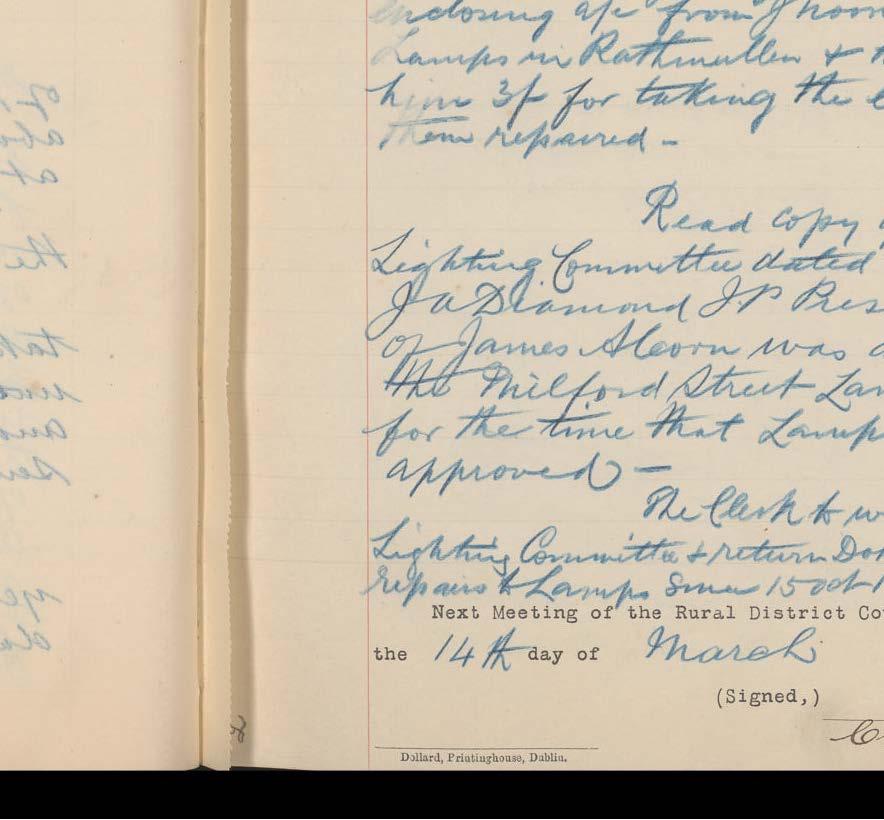 enclosing a/c from J
Lamps in Rathmullen &
him 3/- for taking the
them repaired -
Read copy
Lighting Committee dated
J A Diamond J.P Pres
of James Alcorn was
the Milford Street Lam
for the time that Lamps
approved -
The Clerk to w
Lighting Committee & return Don
repairs to Lamps since 15 Oct 1
Next Meeting of the Rural District Cou
the 14th day of March
(Signed,)
Dollard, Printinghouse, Dublin.